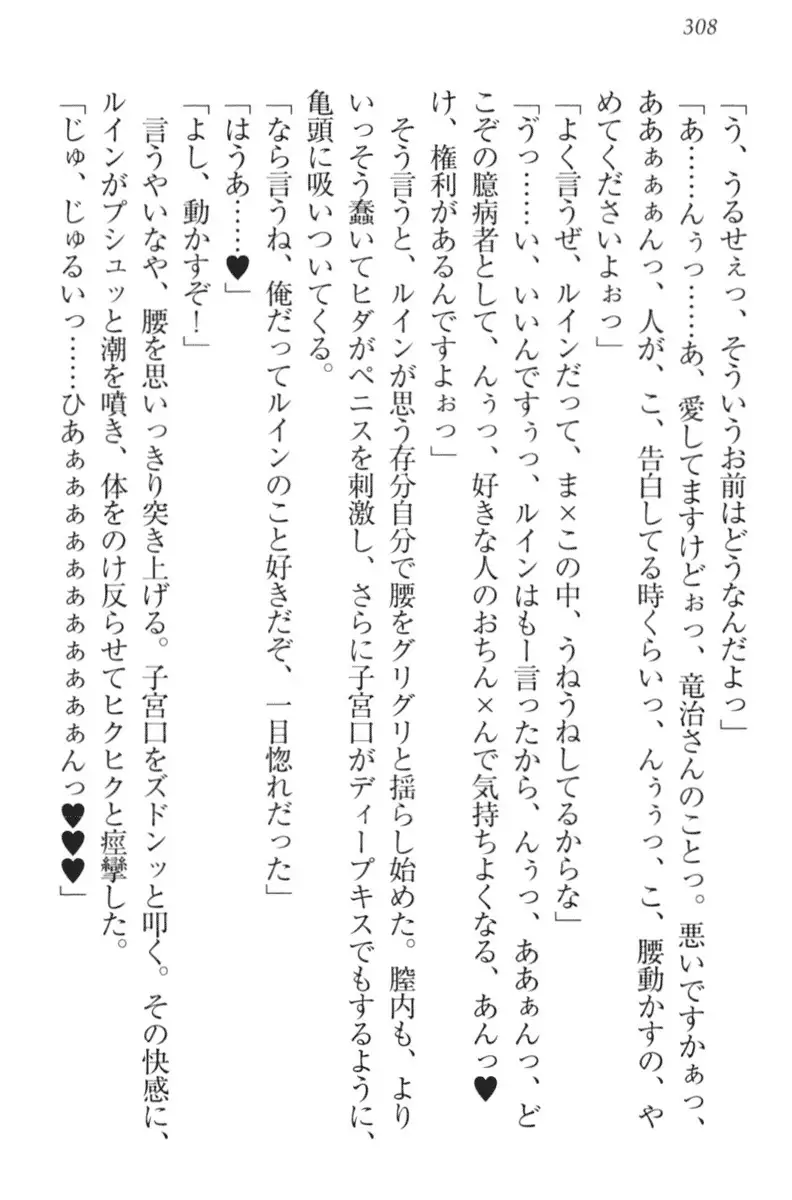 308
「う、うるせぇっ、そういうお前はどうなんだよっ」
「あ……んぅっ……あ、愛してますけどぉっ、竜治さんのことっ。悪いですかぁっ、
ああぁぁぁんっ、人が、こ、告白してる時くらいっ、んぅぅっ、こ、腰動かすの、や
めてくださいよぉっ」
「よく言うぜ、ルインだって、ま×この中、うねうねしてるからな」
「ゔっ……い、いいんですぅっ、ルインはもー言ったから、んぅっ、ああぁんっ、ど
こぞの臆病者として、んぅっ、好きな人のおちん×んで気持ちよくなる、あんっ♥
け、権利があるんですよぉっ」
　そう言うと、ルインが思う存分自分で腰をグリグリと揺らし始めた。膣内も、より
いっそう蠢いてヒダがペニスを刺激し、さらに子宮口がディープキスでもするように、
亀頭に吸いついてくる。
「なら言うね、俺だってルインのこと好きだぞ、一目惚れだった」
「はうあ……♥」
「よし、動かすぞ！」
　言うやいなや、腰を思いっきり突き上げる。子宮口をズドンッと叩く。その快感に、
ルインがプシュッと潮を噴き、体をのけ反らせてヒクヒクと痙攣した。
「じゅ、じゅるいっ……ひあぁぁぁぁぁぁぁぁぁぁぁぁんっ♥♥♥」